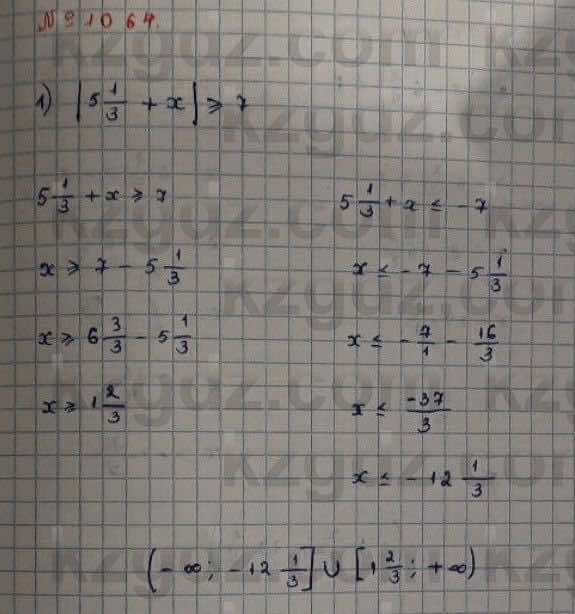 № 1064.
1) |5 1/3 + x| ⩾ 7
5 1/3 + x ⩾ 7
x ⩾ 7 - 5 1/3
x ⩾ 6 3/3 - 5 1/3
x ⩾ 1 2/3
5 1/3 + x ≤ -7
x ≤ -7 - 5 1/3
x ≤ - 7/1 - 16/3
x ≤ -37/3
x ≤ -12 1/3
(-∞; -12 1/3] ∪ [1 2/3; +∞)
kzguz.com